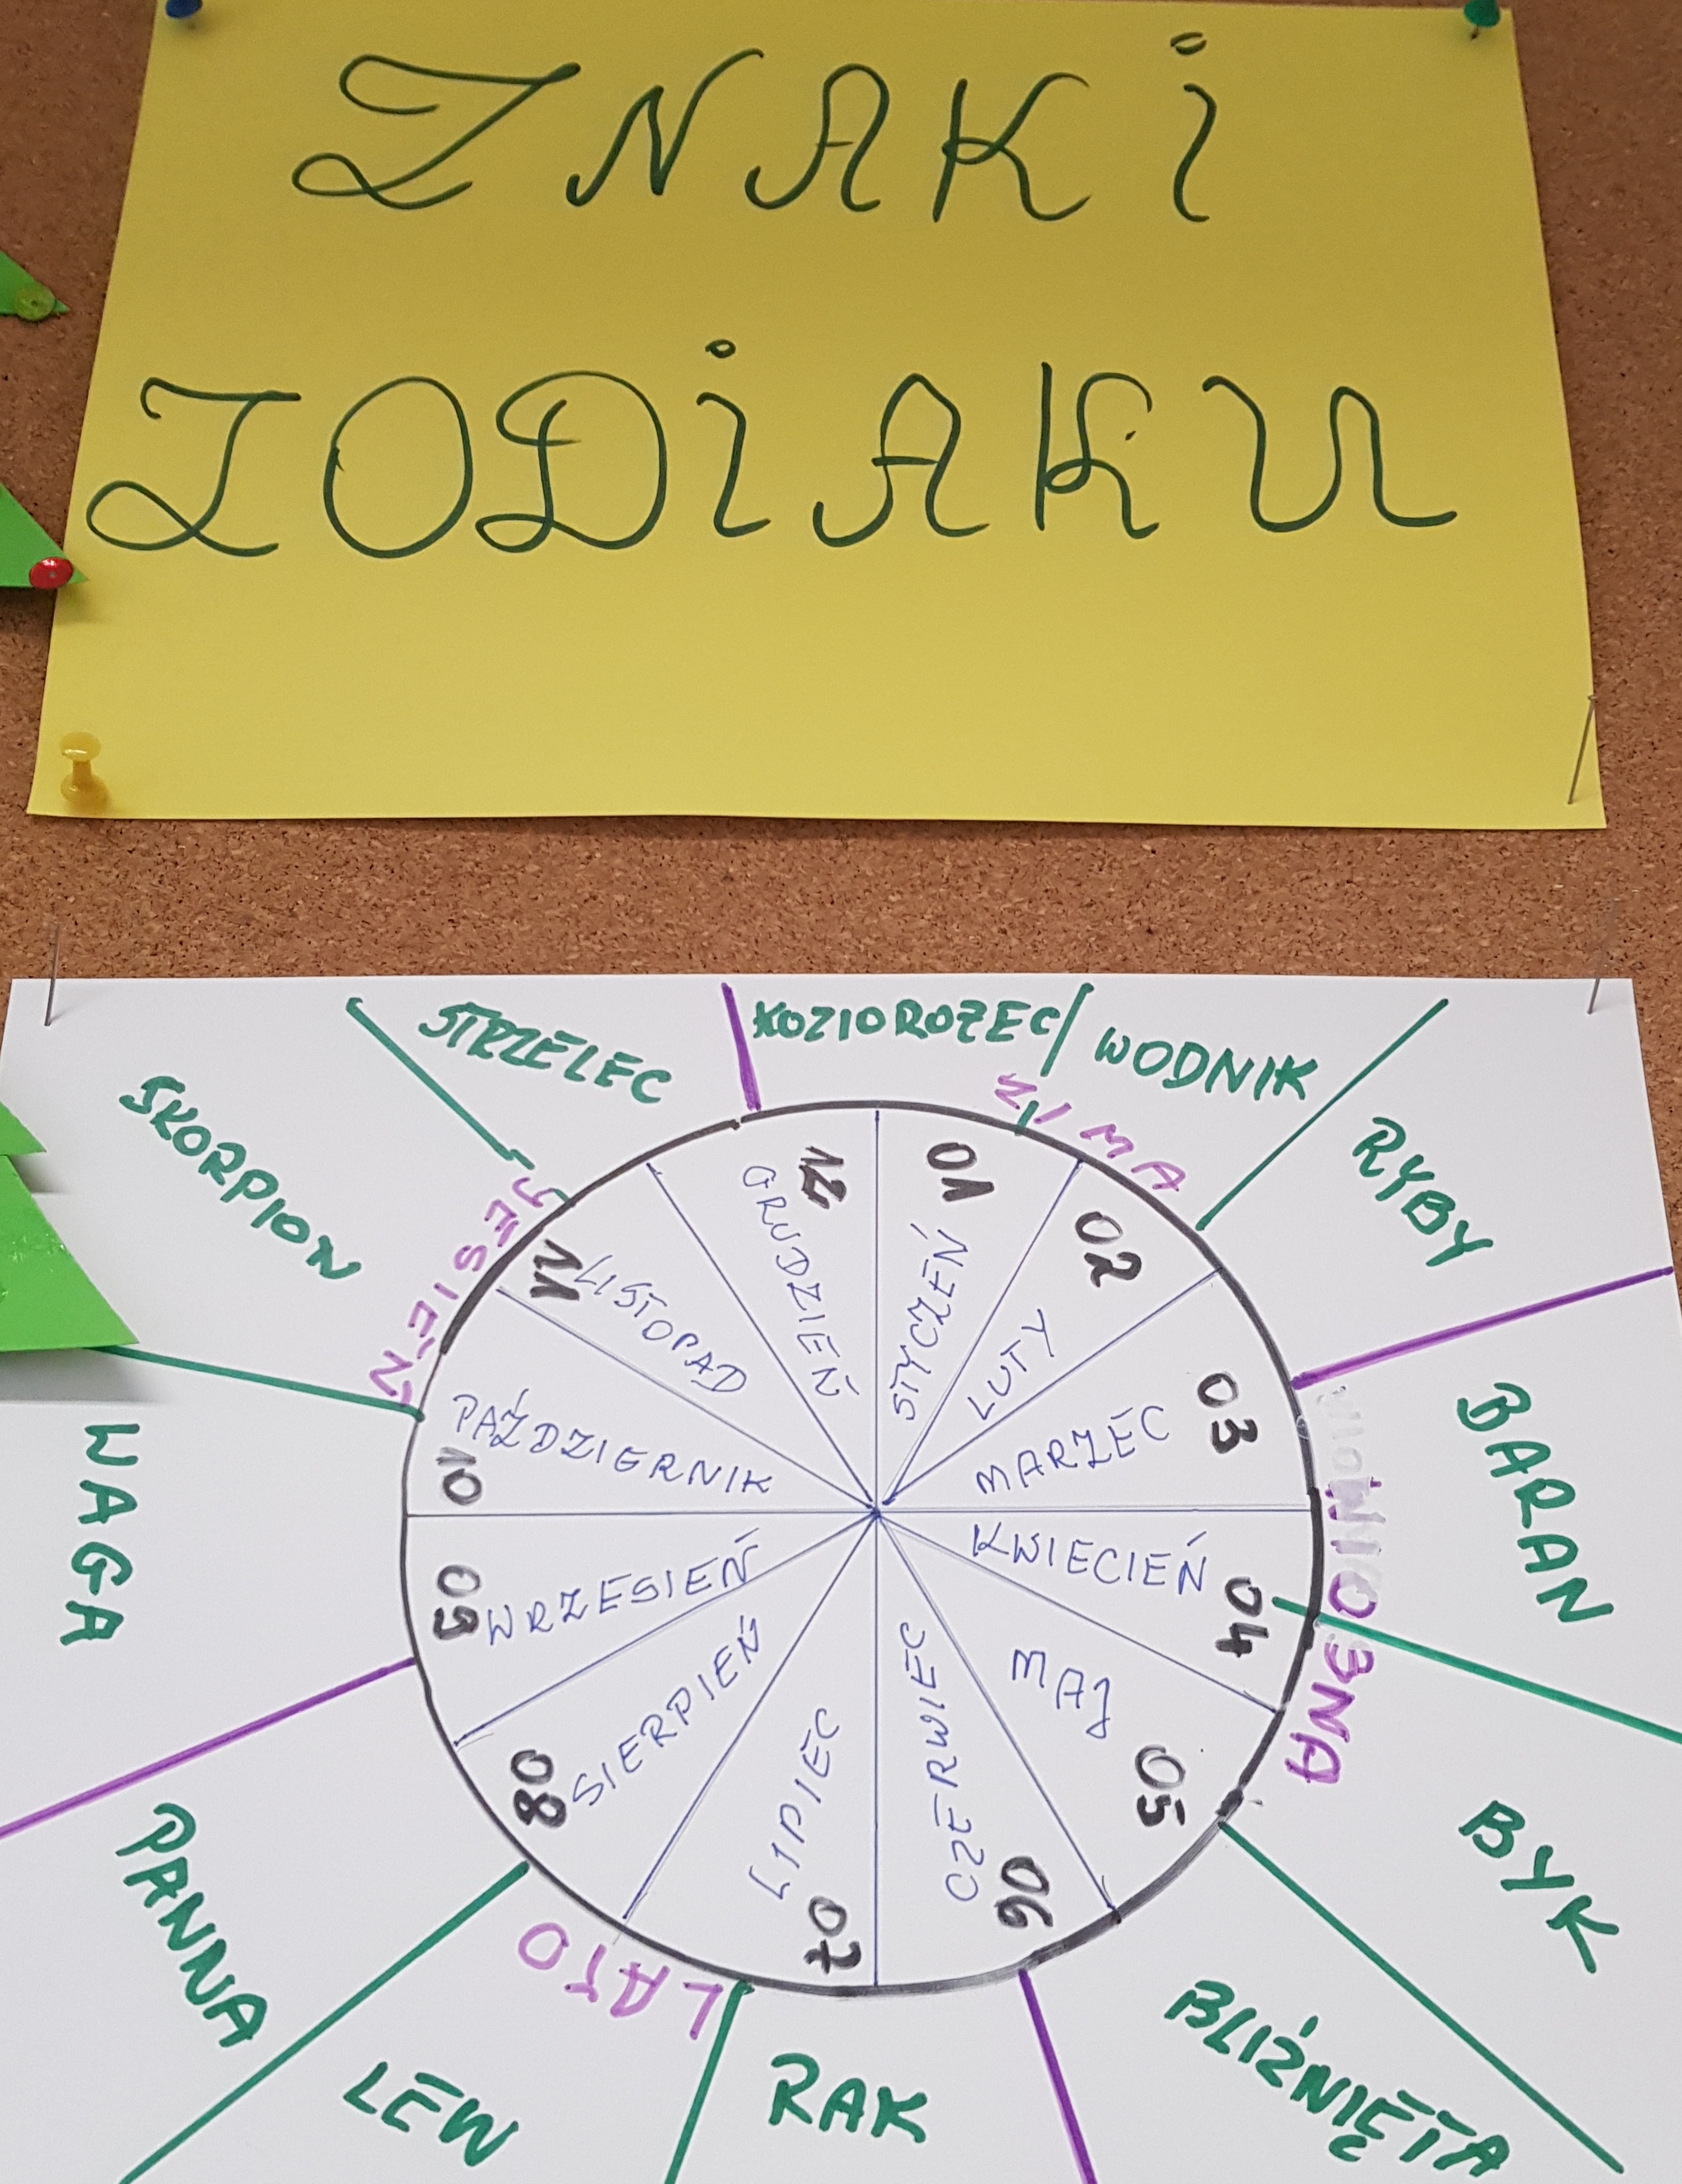 ZNAKI
ZODIAKU
STRZELEC
KOZIOROŻEC
WODNIK
RYBY
BARAN
BYK
BLIŹNIĘTA
RAK
LEW
PANNA
WAGA
SKORPION
ZIMA
WIOSNA
LATO
JESIEŃ
01
STYCZEŃ
02
LUTY
03
MARZEC
04
KWIECIEŃ
05
MAJ
06
CZERWIEC
07
LIPIEC
08
SIERPIEŃ
09
WRZESIEŃ
10
PAŹDZIERNIK
11
LISTOPAD
12
GRUDZIEŃ